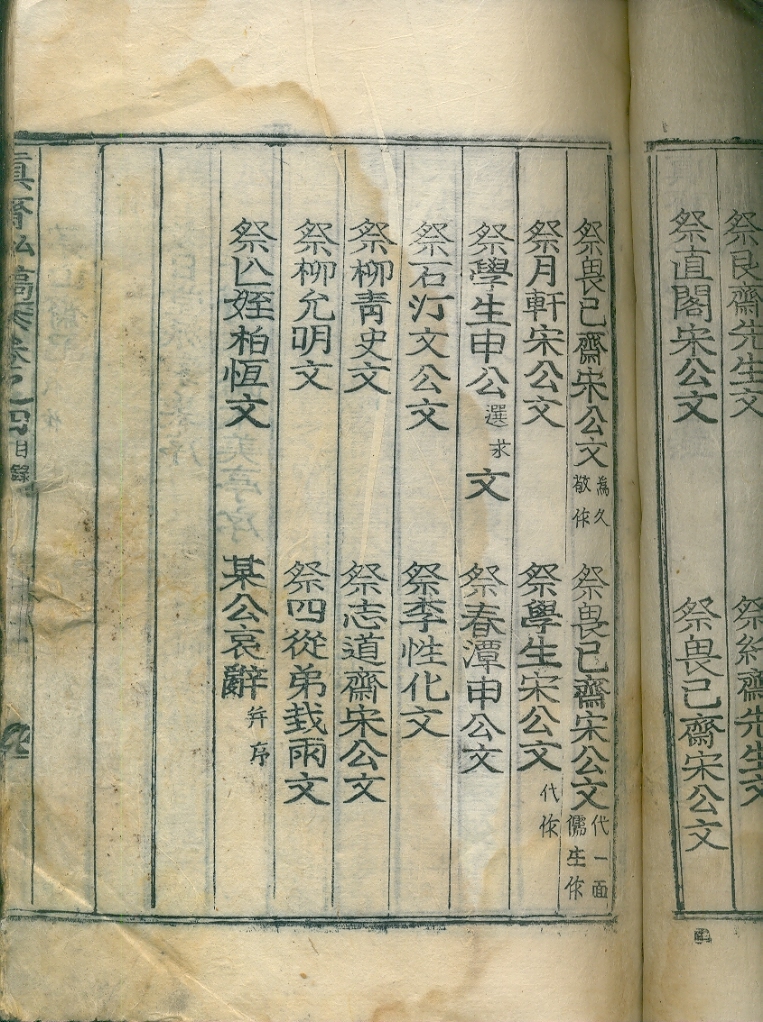 祭艮齋先生文
祭直閣宋公文 祭畏已齋宋公文
祭畏已齋宋公文 為久敬作 祭畏已齋宋公文 代一面儒生作
祭月軒宋公文 祭學生宋公文 代作
祭學生申公 選求 文 祭春潭申公文
祭石汀文公文 祭李性化文
祭柳青史文 祭志道齋宋公文
祭柳允明文 祭四從弟㦲雨文
祭亾姪柏恆文 某公哀辭 并序
卷之四 目錄